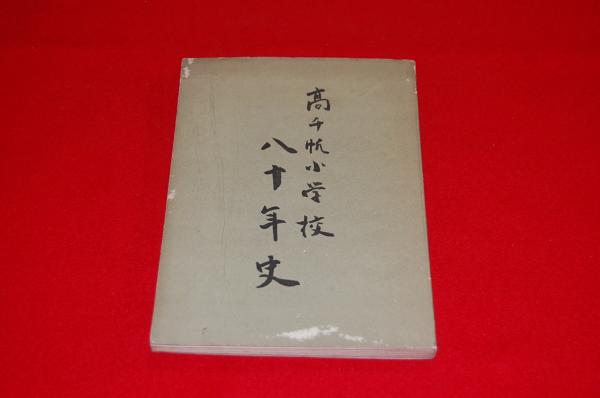 高千帆小学校
八十年史